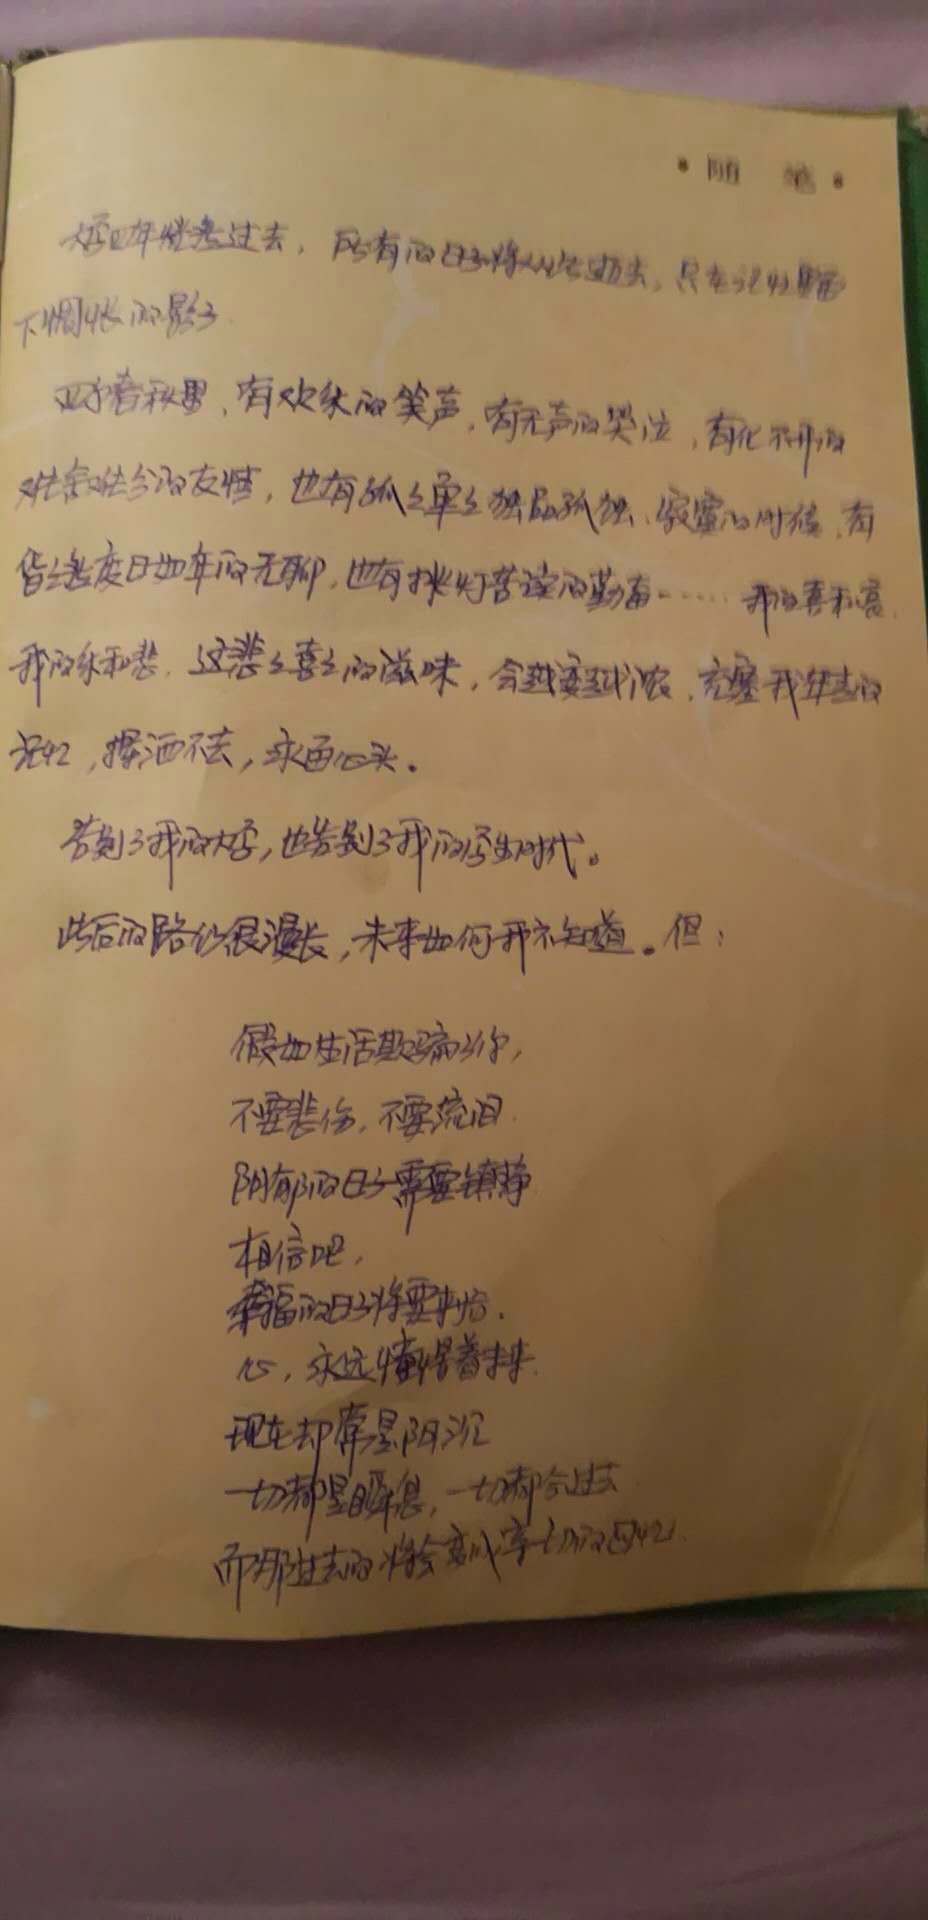 ·随 笔·
大学四年 过去，所有的日子将从此逝去，只在记忆里留
下惆怅的影子.
四个春秋里，有欢乐的笑声，有无声的哭泣，有化不开的
难舍难分的友情，也有孤孤单单独品孤独、寂寞的时候，有
昏昏 度日如年的无聊，也有挑灯苦读的勤奋……我的喜和
我的乐和悲．这悲悲喜喜的滋味，会越变越浓，充塞我 的
记忆，挥洒不去，永留心头。
告别了我的大学，也告别了我的学生时代。
此后的路仍很漫长，未来如何我不知道。但：
假如生活欺骗了你，
不要悲伤，不要流泪．
阴郁的日子需要镇静
相信吧，
幸福的日子将要来临．
心，永远憧憬着未来．
现在却常是阴沉
一切都是瞬息，一切都会过去
而那过去的将会变成亲切的回忆．